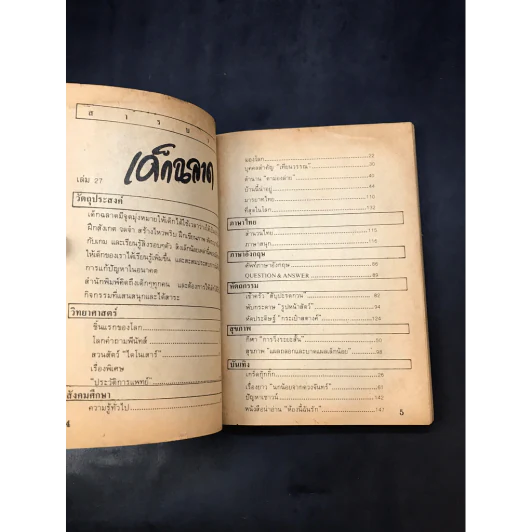 สารบั
เด็กฉลาด
เล่ม 27
วัตถุประสงค์
เด็กฉลาดมีจุดมุ่งหมายให้เด็กได้ใช้เวลาว่างให้
ฝึกสังเกต จดจำ สร้างไหวพริบ ฝึกเขียนภาพ
กับเกม และเรียนรู้สิ่งรอบๆตัว สิ่งเล็กน้อยเหล่านี้
ให้เด็กของเราได้เรียนรู้เพิ่มขึ้น และสะสมประสบการณ์
การแก้ปัญหาในอนาคต
สำนักพิมพ์คิดถึงเด็กๆทุกคน และต้องการให้
กิจกรรมที่แสนสนุกและได้สาระ
วิทยาศาสตร์
ชิ้นแรกของโลก
โลกคำถามพีนัทส์
สวนสัตว์ "ไดโนเสาร์"
เรื่องพิเศษ
"ประวัติการแพทย์"
สังคมศึกษา
ความรู้ทั่วไป
4
มองโลก 22
บุคคลสำคัญ "เทียนวรรณ" 30
ตำนาน "ตาม่องล่าย" 40
บ้านนี้น่าอยู่ 44
มารยาทไทย 142
ที่สุดในโลก 132
ภาษาไทย
สำนวนไทย 115
ภาษาสนุก 115
ภาษาอังกฤษ
ศัพท์ภาษาอังกฤษ 86
QUESTION & ANSWER 89
หัตถกรรม
เข้าครัว "สับปะรดกวน" 82
พับกระดาษ "รูปหน้าสัตว์" 64
คัดประดิษฐ์ "กระเป๋าสตางค์" 124
สุขภาพ
กีฬา "การวิ่งระยะสั้น" 50
สุขภาพ "แผลถลอกและบาดแผลเล็กน้อย" 58
บันเทิง
เกร็ดกุ๊กกิ๊ก 26
เรื่องยาว "นกน้อยจากดวงจันทร์" 61
ปัญหาเชาวน์ 142
หนังสือน่าอ่าน "ห้องนี้ฉันรัก" 147
5